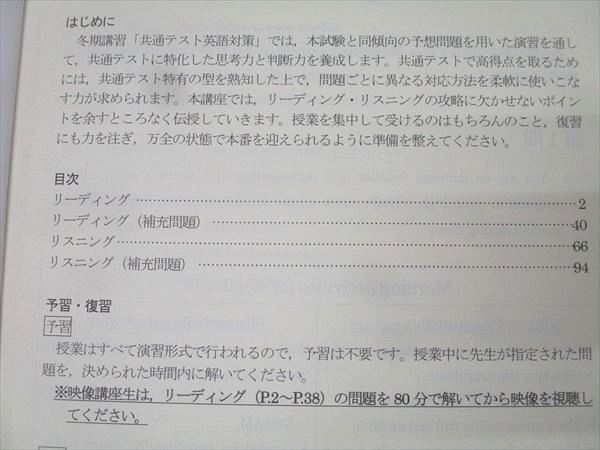 はじめに
冬期講習「共通テスト英語対策」では，本試験と同傾向の予想問題を用いた演習を通し
て，共通テストに特化した思考力と判断力を養成します。共通テストで高得点を取るため
には，共通テスト特有の型を熟知した上で，問題ごとに異なる対応方法を柔軟に使いこな
す力が求められます。本講座では，リーディング・リスニングの攻略に欠かせないポイン
トを余すところなく伝授していきます。授業を集中して受けるのはもちろんのこと，復習
にも力を注ぎ，万全の状態で本番を迎えられるように準備を整えてください。
目次
リーディング……………………………………………………2
リーディング（補充問題）……………………………………40
リスニング………………………………………………………66
リスニング（補充問題）………………………………………94
予習・復習
予習
授業はすべて演習形式で行われるので，予習は不要です。授業中に先生が指定された問
題を，決められた時間内に解いてください。
※映像講座生は，リーディング（P.2～P.38）の問題を 80 分で解いてから映像を視聴し
てください。